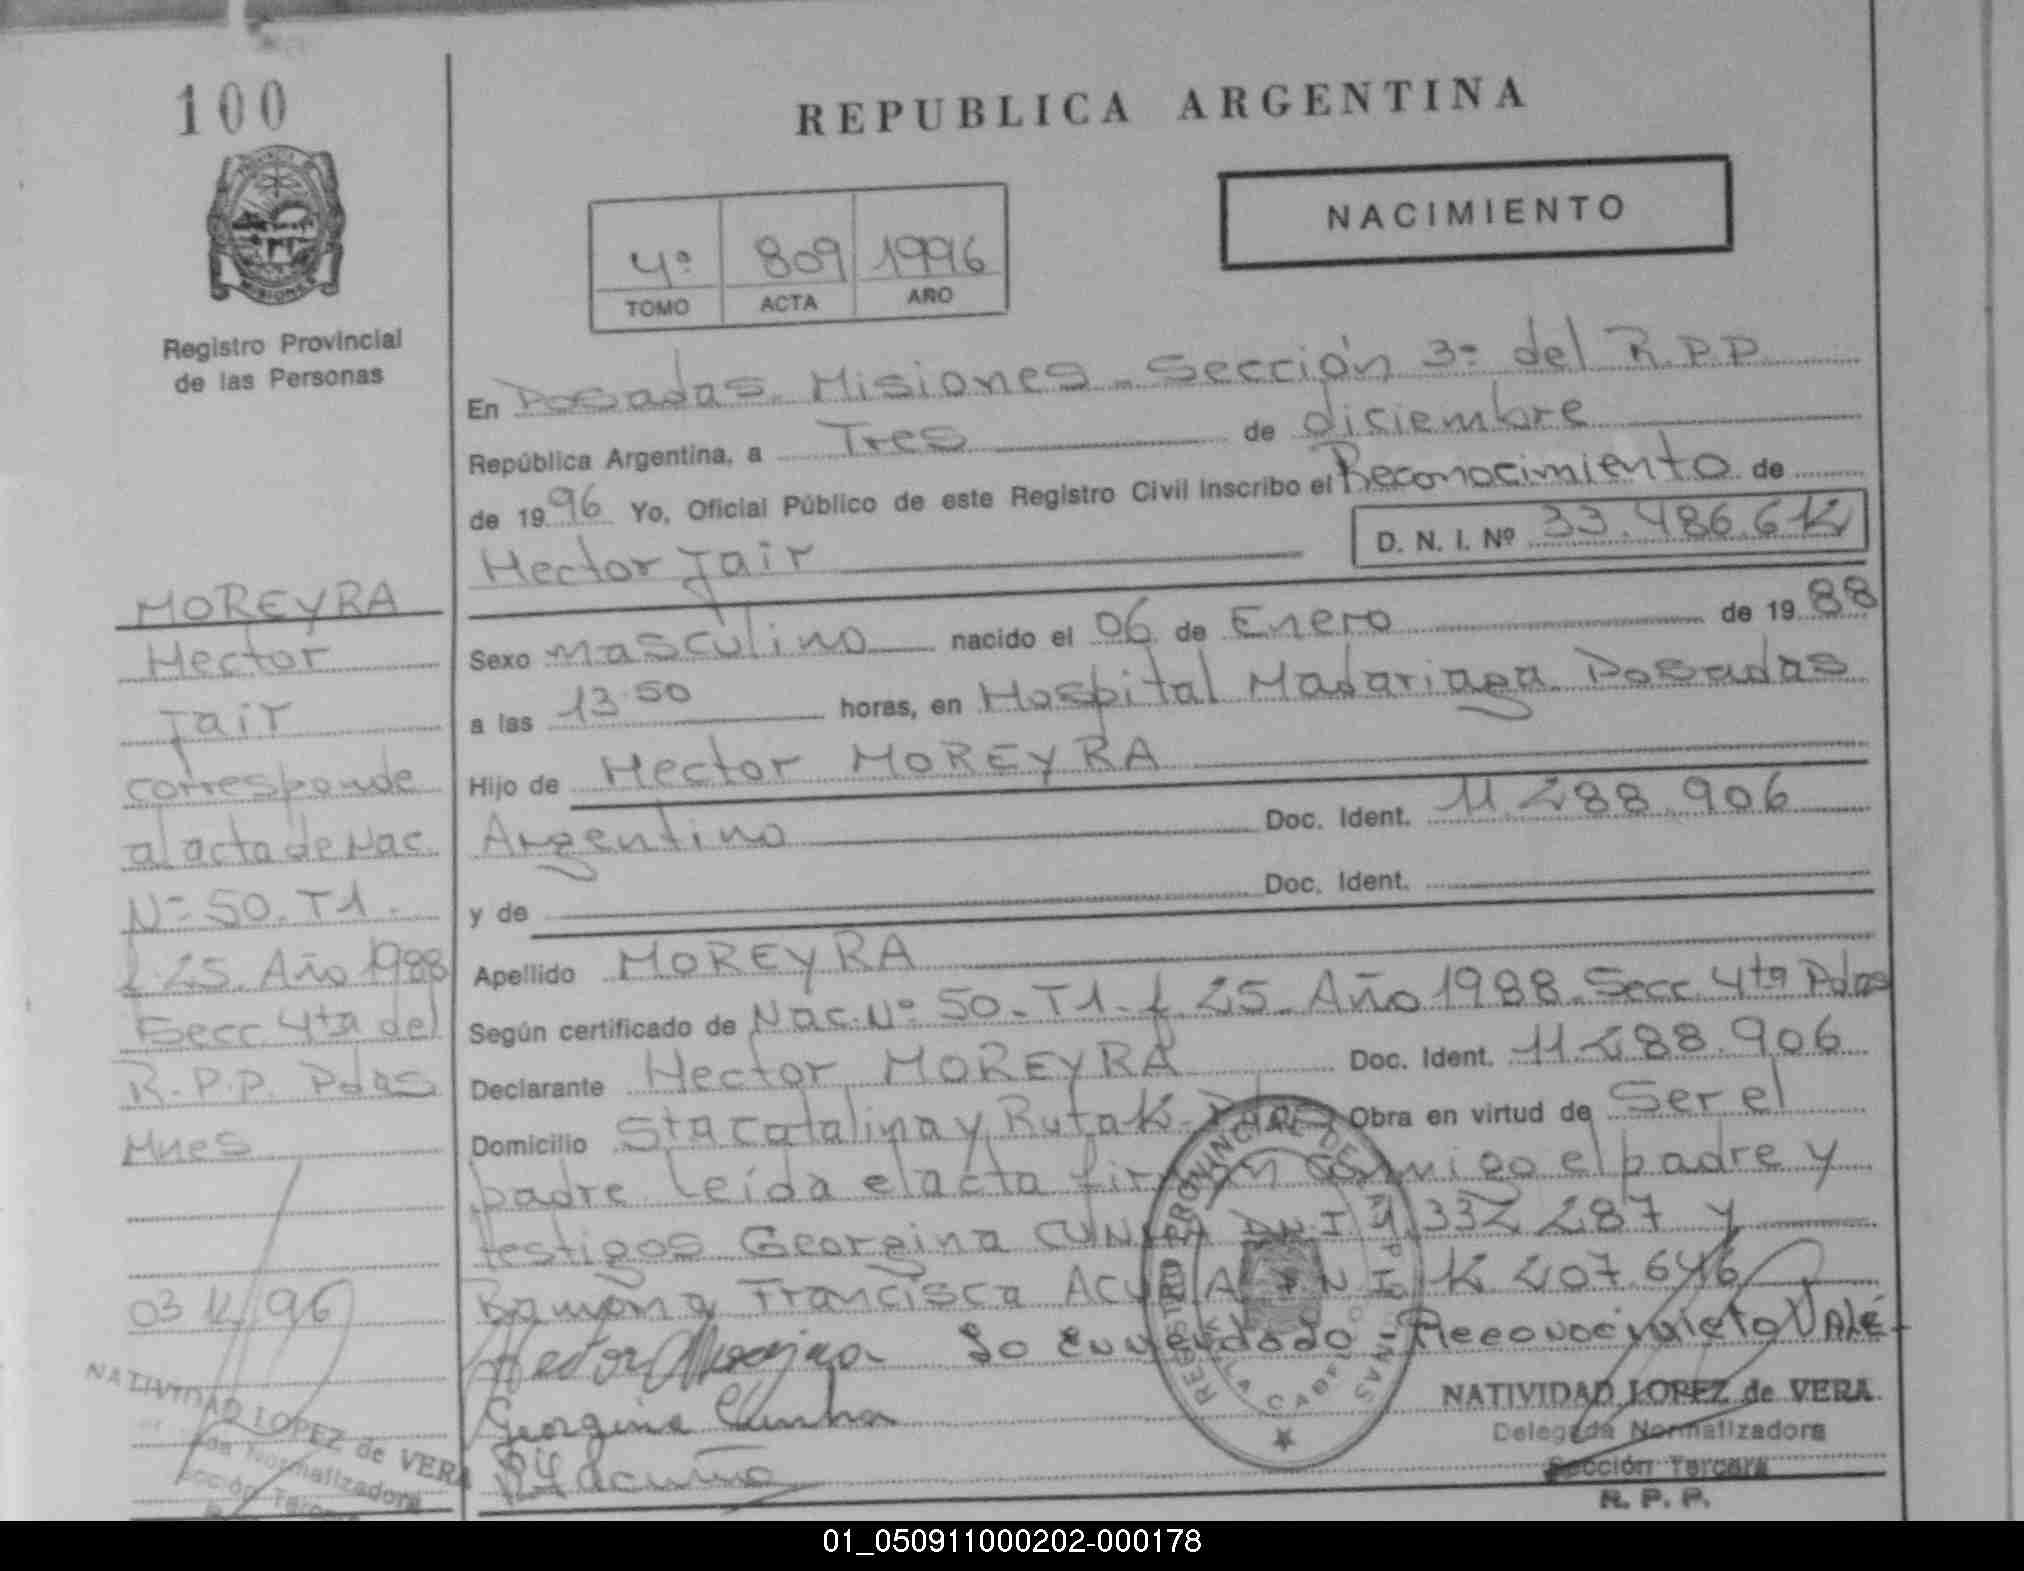 100
REPUBLICA ARGENTINA
NACIMIENTO
4º 809 1996
TOMO ACTA AÑO
MISIONES
Registro Provincial
de las Personas
En Posadas. Misiones. Sección 3º del R.P.P
República Argentina, a Tres de diciembre
de 1996 Yo, Oficial Público de este Registro Civil inscribo el Reconocimiento de
Hector Jair D. N. I. Nº 33.486.612
Sexo masculino nacido el 06 de Enero de 1988
a las 13.50 horas, en Hospital Madariaga Posadas
Hijo de Hector MOREYRA
Argentino Doc. Ident. 11.288.906
y de Doc. Ident.
Apellido MOREYRA
Según certificado de Nac. Nº 50. T1. f 25. Año 1988. Secc. 4ta Pdas
Declarante Hector MOREYRA Doc. Ident. 11.288.906
Domicilio Sta Catalina y Ruta 12 Pdas Obra en virtud de Ser el
padre leída el acta firman conmigo el padre y
testigos Georgina CUNHA DNI 332 287 y
Ramona Francisca ACUÑA DNI 12 207.646
Hector Moreyra Lo Enmendado - Reconocimieto Vale-
Georgina Cunha
R F Acuña
NATIVIDAD LOPEZ de VERA
Delegada Normalizadora
Sección Tercera
R. P. P.
MOREYRA
Hector
Jair
corresponde
al acta de Nac.
Nº 50. T1.
f 25. Año 1988
Secc. 4ta del
R.P.P. Pdas
Mnes
03 12/96
NATIVIDAD LOPEZ de VERA
Normalizadora
01_050911000202-000178